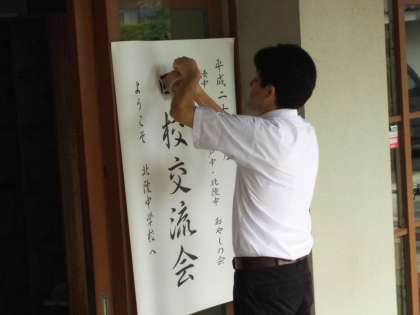 平成二十
中・北陵中 おやじの会
校交流会
ようこそ 北陵中学校へ